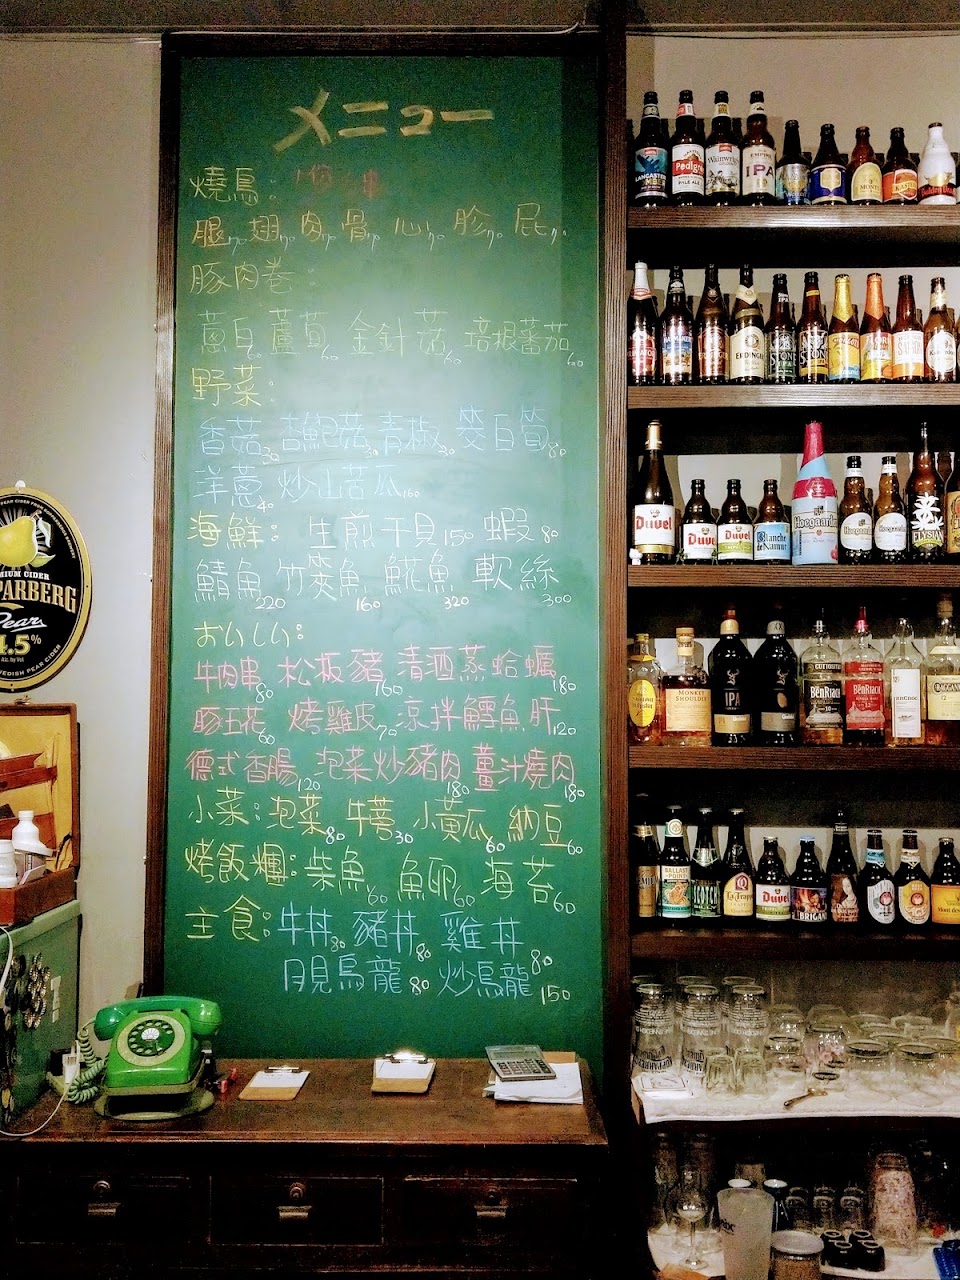 メニュー
燒鳥: 1份 串
腿70 翅70 肉70 骨70 心70 胗70 屁70
豚肉卷:
蔥白60 蘆筍60 金針菇60 培根蕃茄60
野菜:
香菇30 杏鮑菇30 青椒30 筊白筍80
洋蔥40 炒山苦瓜160
海鮮: 生煎干貝150 蝦80
鯖魚220 竹筴魚160 魠魚320 軟絲300
おいしい:
牛肉串80 松板豬160 清酒蒸蛤蠣180
豚五花60 烤雞皮70 涼拌鱈魚肝120
德式香腸120 泡菜炒豬肉180 薑汁燒肉180
小菜: 泡菜80 牛蒡30 小黃瓜60 納豆60
烤飯糰: 柴魚60 魚卵60 海苔60
主食: 牛丼80 豬丼80 雞丼80
月見烏龍80 炒烏龍150
PEAR CIDER
MIUM CIDER
PARBERG
Pear
4.5%
Alc. by Vol
SWEDISH PEAR CIDER
LANCASTER
Pedigree
PALE ALE
Wainwright
EMPIRE
IPA
ERDINGER
STONE
IPA
STONE
Duvel
Duvel
Duvel
Blanche de Namur
Hoegaarden
Hoegaarden
Hoegaarden
ELYSIAN
MONKEY SHOULDER
IPA
CURIOSITAS
BENRIACH
10
BENRIACH
BALLAST POINT
SCOTCH
La Trappe
Duvel
BRIGAND